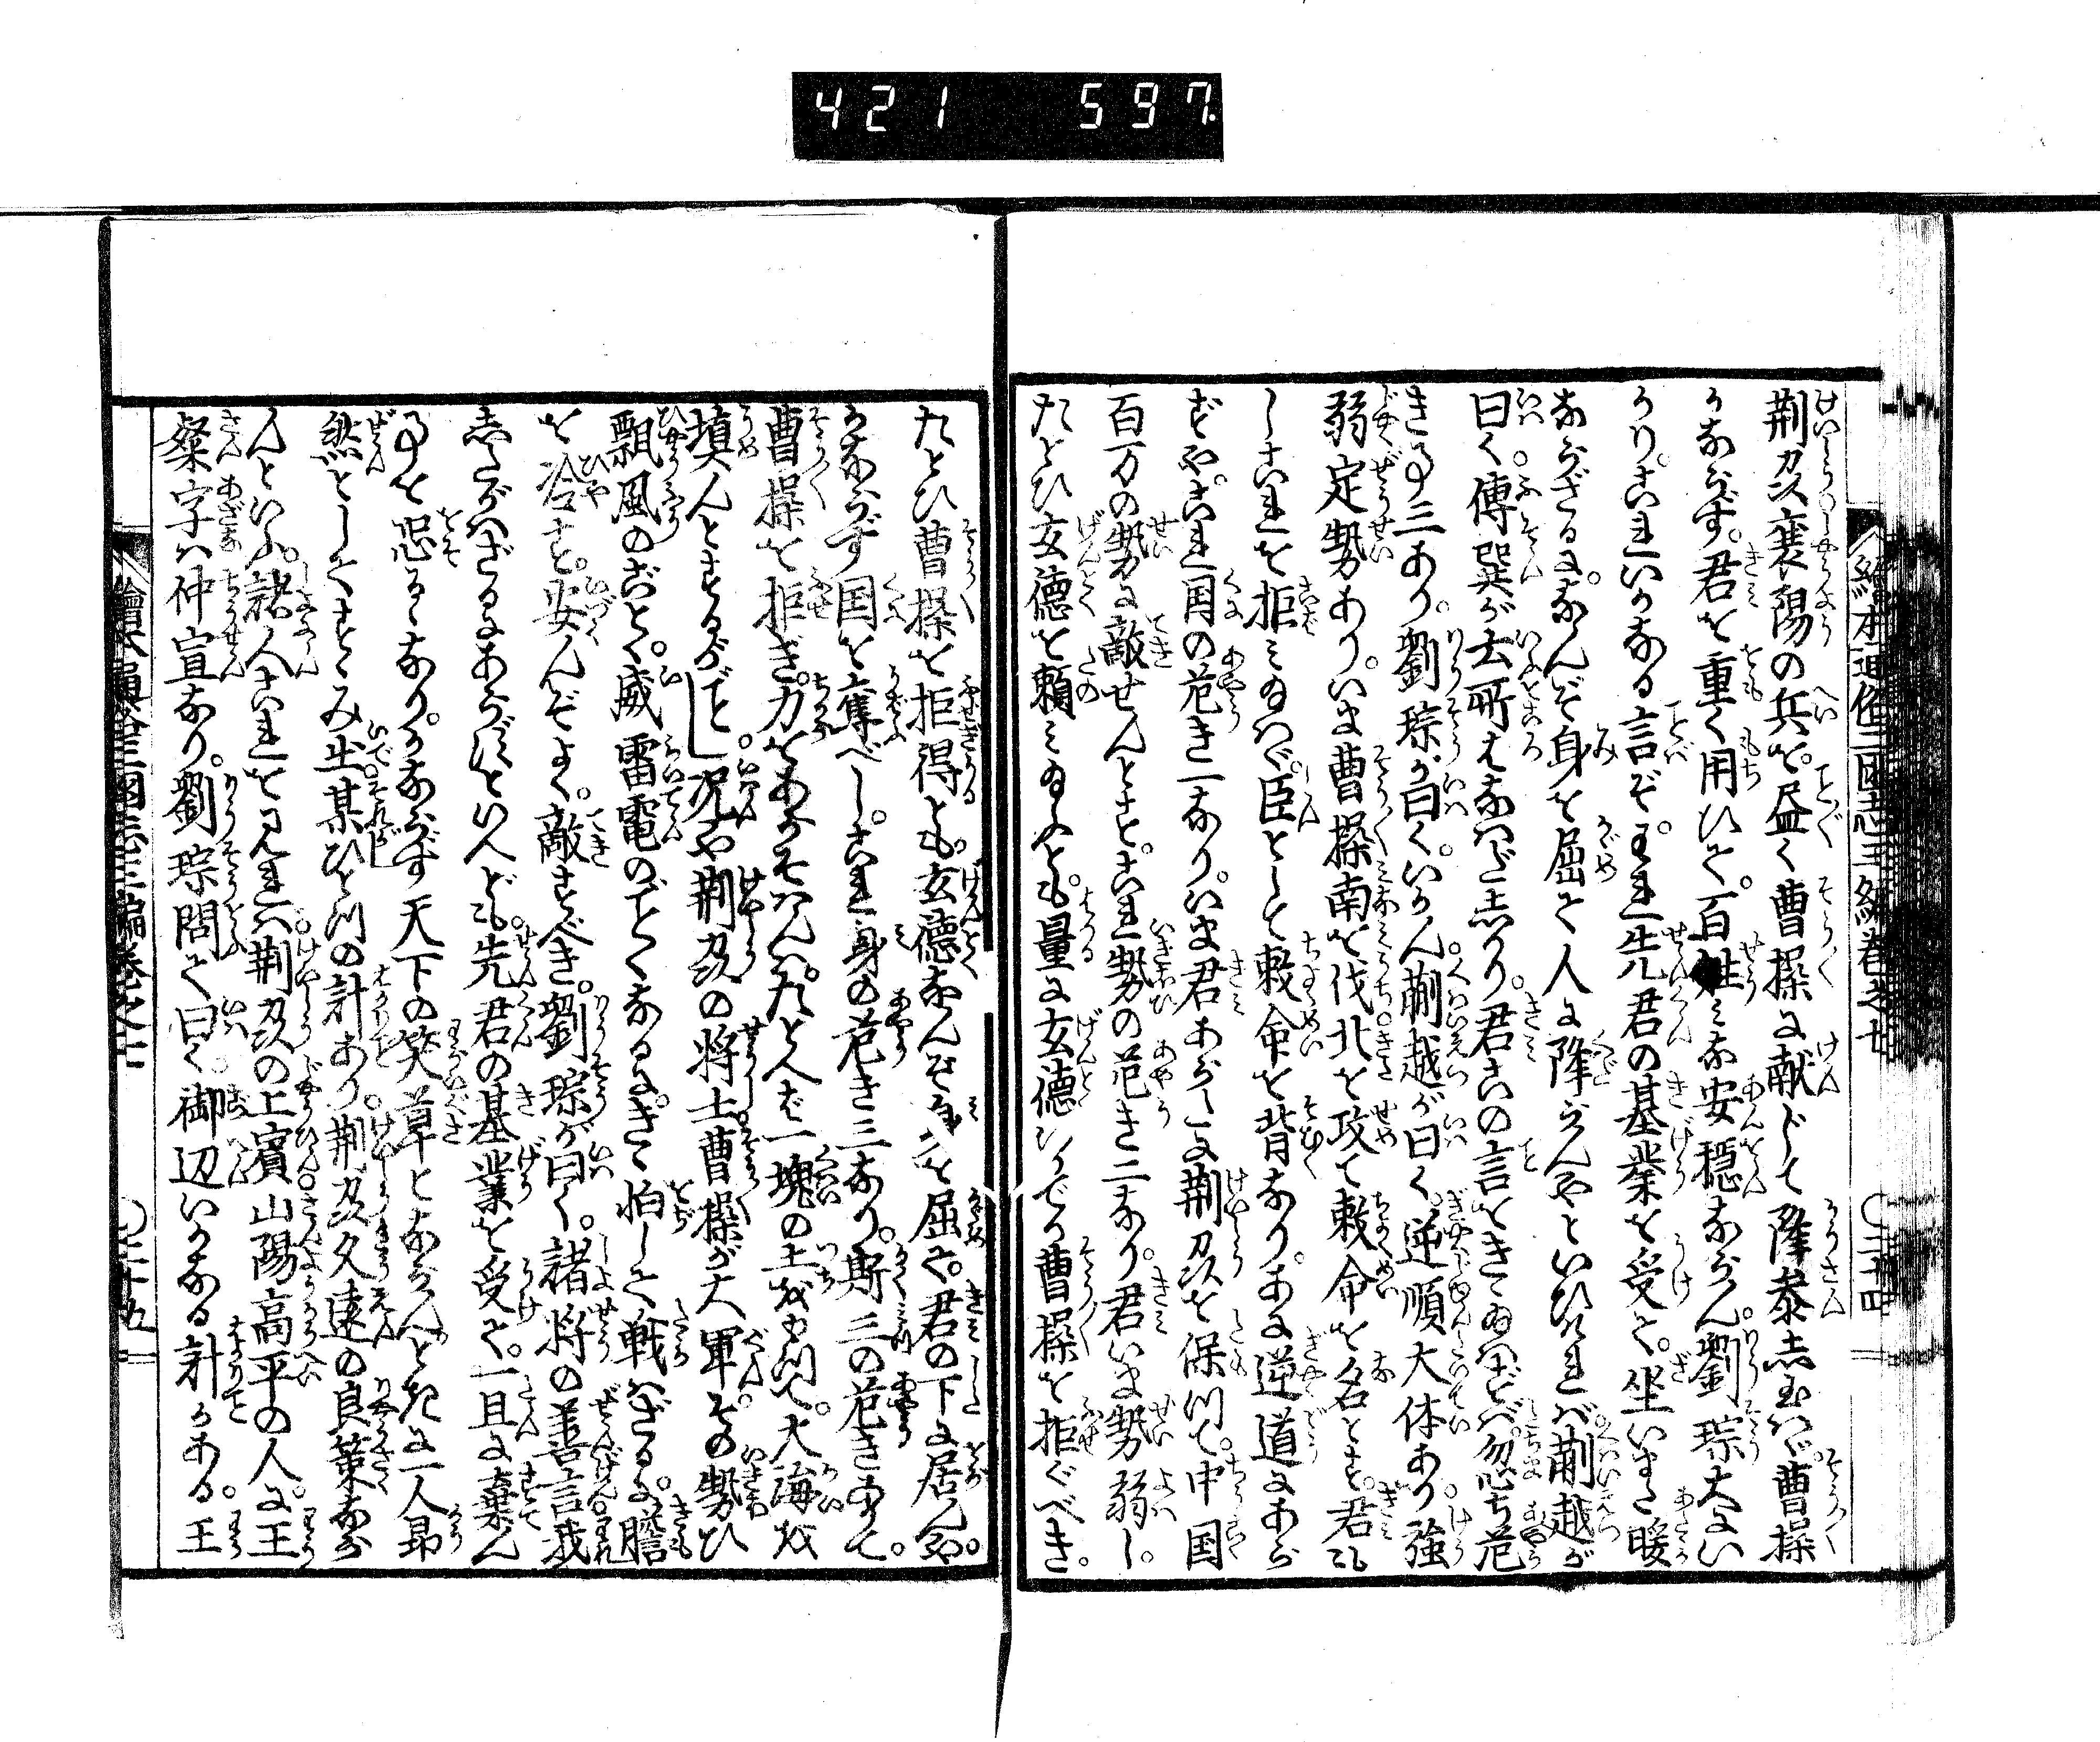 421 597.
繪本通俗三国志三編巻之七 ○三十四
荆刕襄陽の兵を尽く曹操に献じて降参し玉はゞ曹操
かならず君を重く用ひて百姓みな安穏ならん劉琮大い
かりこれいかなる言ぞやわれ先君の基業を受て坐いまだ暖
ならざるになんぞ身を屈て人に降らんやといひければ蒯越が
曰く傅巽が云所はなはだしかり君この言をきゝ玉はずんば忽ち危
き事三あり劉琮が曰くいかん蒯越が曰く逆順大体あり強
弱定勢ありいま曹操南を伐北を攻て敕命を名とす君も
しこれを拒み玉はゞ臣として敕命を背なりあに逆道にあら
ずやこれ国の危き一なりいま君あらたに荆刕を保つて中国
百万の勢に敵せんとすこれ勢の危き二なり君いま勢弱し
たとひ玄徳を頼み玉ふとも量に玄徳いかでか曹操を拒ぐべき
たとひ曹操を拒得とも玄徳なんぞ身を屈て君の下に居んや
かならず国を奪べしこれ身の危き三なり斯三の危きあつて
曹操を拒ぎ力をあらそはんはたとへば一塊の土をもつて大海を
填んとするがごとし況や荆刕の将士曹操が大軍その勢ひ
飄風のごとく威雷電のごとくなるをきゝ怕して戦はざるに膽
を冷す安んぞよく敵すべき劉琮が曰く諸将の善言我
したがはざるにあらずといへども先君の基業を受て一旦に棄ん
事を恐るゝなりかならず天下の笑草とならんとき に一人昂
然としてすゝみ出某ひとつの計あり荆刕久遠の良策なら
んといふ諸人これを見れば荆刕の上賓山陽高平の人に王
粲字は仲宣なり劉琮問て曰く御辺いかなる計かある王
繪本通俗三國志三編巻之七 ○三十五